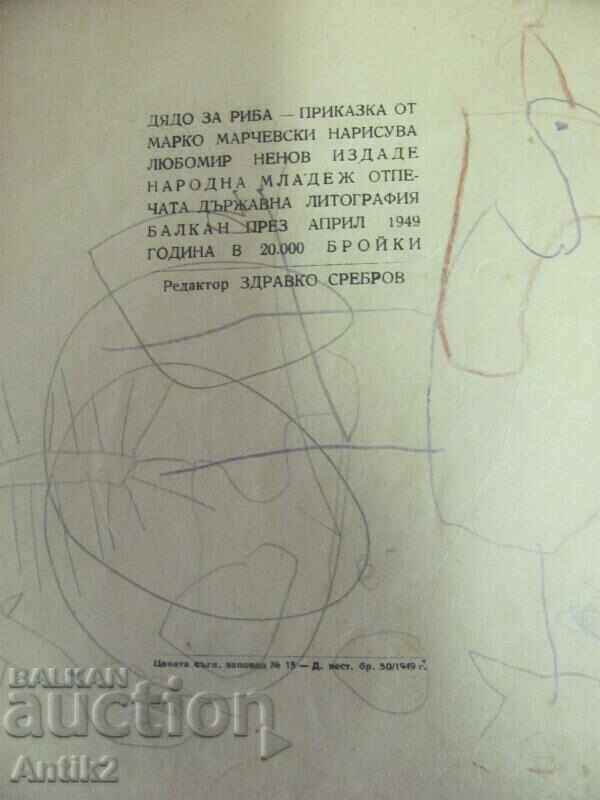 ДЯДО ЗА РИБА — ПРИКАЗКА ОТ
МАРКО МАРЧЕВСКИ НАРИСУВА
ЛЮБОМИР НЕНОВ ИЗДАДЕ
НАРОДНА МЛАДЕЖ ОТПЕ-
ЧАТА ДЪРЖАВНА ЛИТОГРАФИЯ
БАЛКАН ПРЕЗ АПРИЛ 1949
ГОДИНА В 20.000 БРОЙКИ
Редактор ЗДРАВКО СРЕБРОВ
Цената съгл. заповед № 15 — Д. вест. бр. 50/1949 г.
BALKAN
auction
Antik2